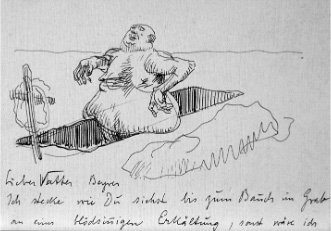 Lieber Vatter Beyer
Ich stecke wie Du siehst bis zum Bauch im Grab
an einer blödsinnigen Erkältung, sonst wäre ich